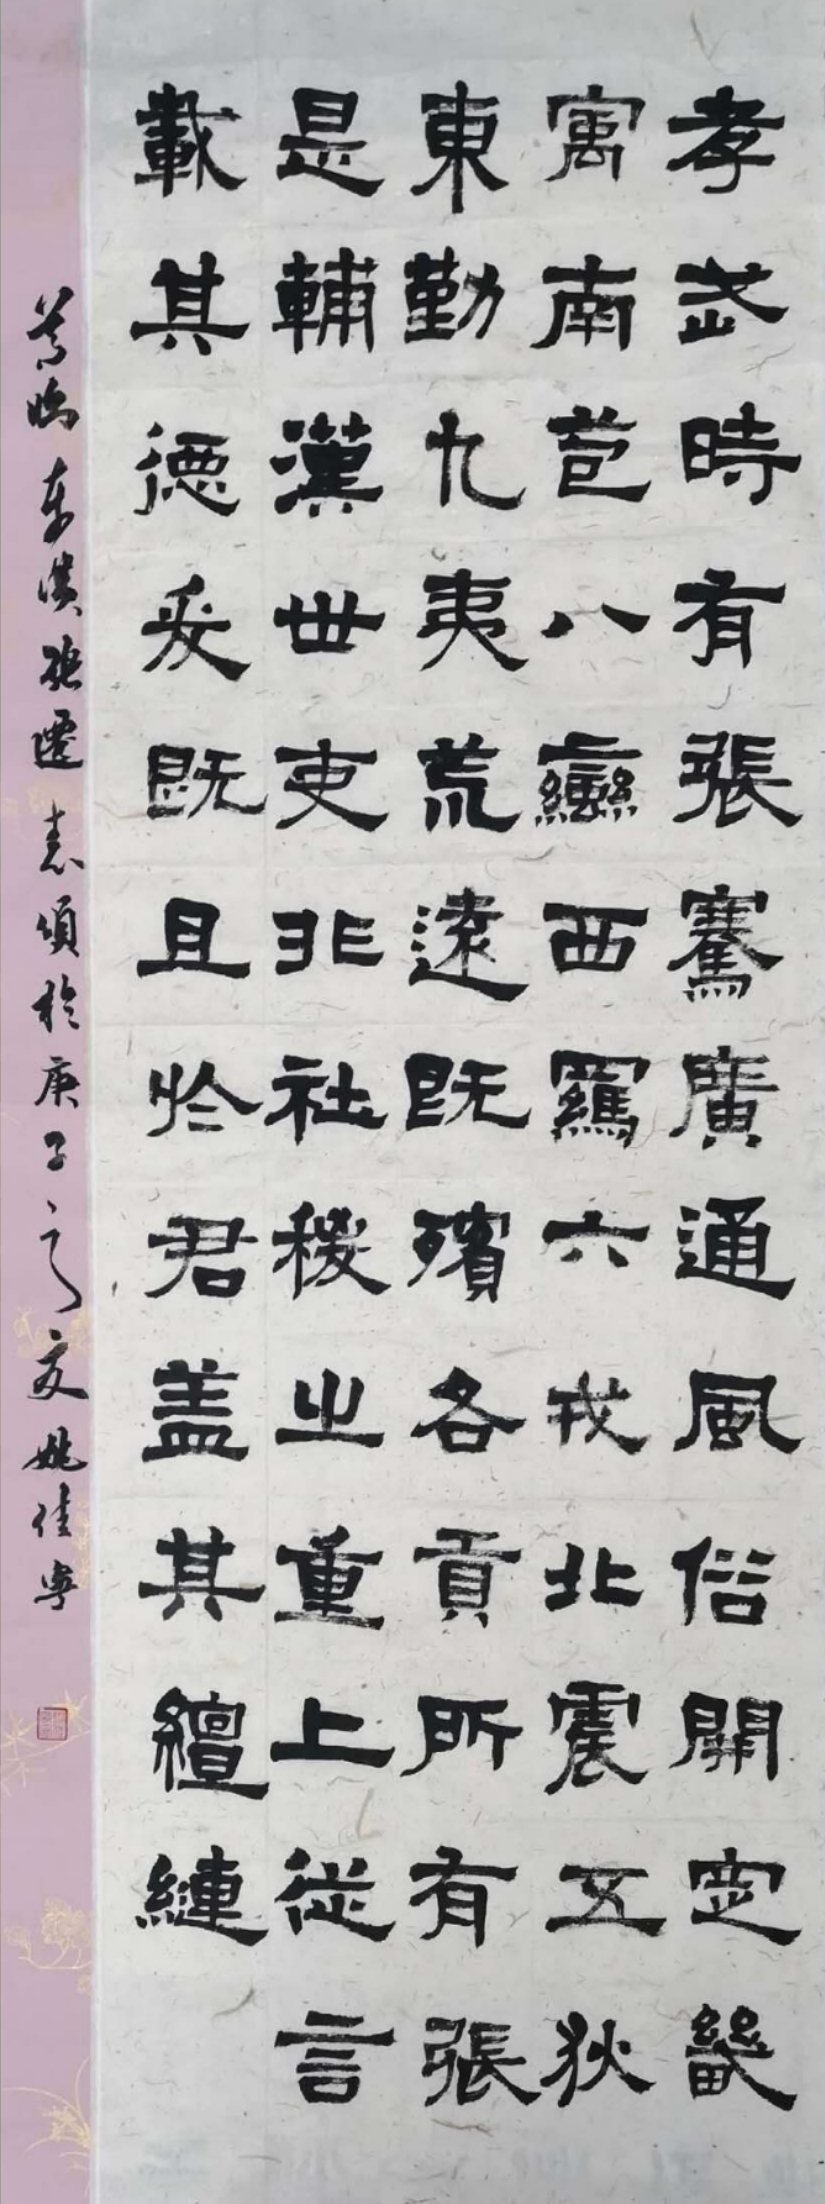 孝武時有張騫廣通風俗開定畿
寓南苞八蠻西羈六戎北震五狄
東勤九夷荒遠既殯各貢所有張
是輔漢世吏非社稷之重上從言
載其德爰既且於君盖其繵縺
节臨东漢張遷表頌於庚子之夏姚佳寧